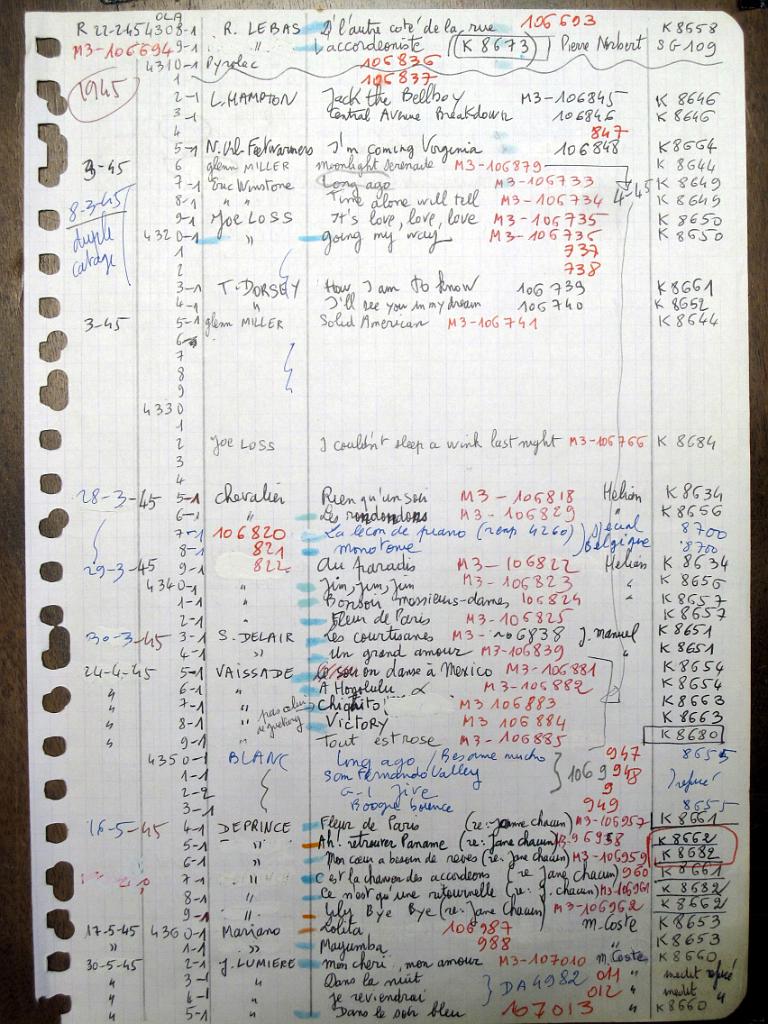 OLA
R 22-245 4308-1 R. LEBAS D'l'autre coté de la rue 106693 K 8658
M3-106694 9-1 " L'accordeoniste K 8673 Pierre Norbert SG 109
4310-1 Pyrolac 106836
1945 1 106837
2-1 L. HAMPTON Jack the Bellboy M3-106845 K 8646
3-1 Central Avenue Breakdown 106846 K 8646
4 847
5-1 I'm coming Virginia 106848 K 8664
3-45 6 glenn MILLER moonlight serenade M3-106879 K 8644
7-1 Eric Winstone Long ago M3-106733 4-45 K 8649
8-1 " " Time alone will tell M3-106734 K 8649
8-3-45 9-1 Joe LOSS It's love, love, love M3-106735 K 8650
duple catage 4320-1 " going my way M3-106736 K 8650
1 737
2 738
3-1 T. DORSEY How I am to know 106739 K 8661
4-1 " I'll see you in my dream 106740 K 8652
3-45 5-1 glenn MILLER Solid American M3-106741 K 8644
6
7
8
9
4330
1
2 Joe LOSS I couldn't sleep a wink last night M3-106766 K 8684
3
4
28-3-45 5-1 Chevalier Rien qu'un soir M3-106818 Hélian K 8634
6-1 " Les rondondons M3-106829 " K 8656
7-1 106820 La leçon de piano (remp 4260) spécial Belgique 8700
8-1 821 monotone 8700
29-3-45 9-1 822 Au paradis M3-106822 Hélian K 8634
4340-1 " Jim, jim, jim M3-106823 " K 8656
1-1 " Bonsoir messieurs-dames 106824 K 8657
2-1 " Fleur de Paris M3-106825 K 8657
30-3-45 3-1 S. DELAIR Les courtisanes M3-106838 J. Manuel K 8651
4-1 " Un grand amour M3-106839 " K 8651
24-4-45 5-1 VAISSADE on danse à Mexico M3-106881 K 8654
" 6-1 " A Honolulu M3-106882 K 8654
" 7-1 " Chiquito M3-106883 K 8663
" 8-1 " VICTORY M3-106884 K 8663
" 9-1 " Tout est rose M3-106885 K 8680
4350-1 BLANC Long ago / Besame mucho 947 8655
1-1 San Fernando Valley 106 948 refusé
2-2 G-I Jive 9
3-1 Boogie bounce 949 8655
16-5-45 4-1 DEPRINCE Fleur de Paris (re: Jeanne chacun) M3-106957 K 8661
5-1 " Ah! retrouver Paname (re: Jane chacun) M3-96958 K 8662
6-1 " Mon cœur a besoin de reves (re: Jane chacun) M3-106959 K 8682
7-1 " C'est la chanson des accordeons (re Jane chacun) 960 K 8661
8-1 " Ce n'est qu'une ritournelle (re: J. chacun) M3-106961 K 8682
9-1 " Lily Bye Bye (re: Jane Chacun) M3-106962 K 8662
17-5-45 4360-1 Mariano Lolita 106987 M. Coste K 8653
" 1-1 " Mayumba 988 " K 8653
30-5-45 2-1 J. LUMIERE mon cheri, mon amour M3-107010 M. Coste K 8660
" 3-1 " Dans la nuit DA 4982 011 " inedit refusé
" 4-1 " je reviendrai 012 " inedit "
" 5-1 " Dans le soir bleu 107013 " K 8660